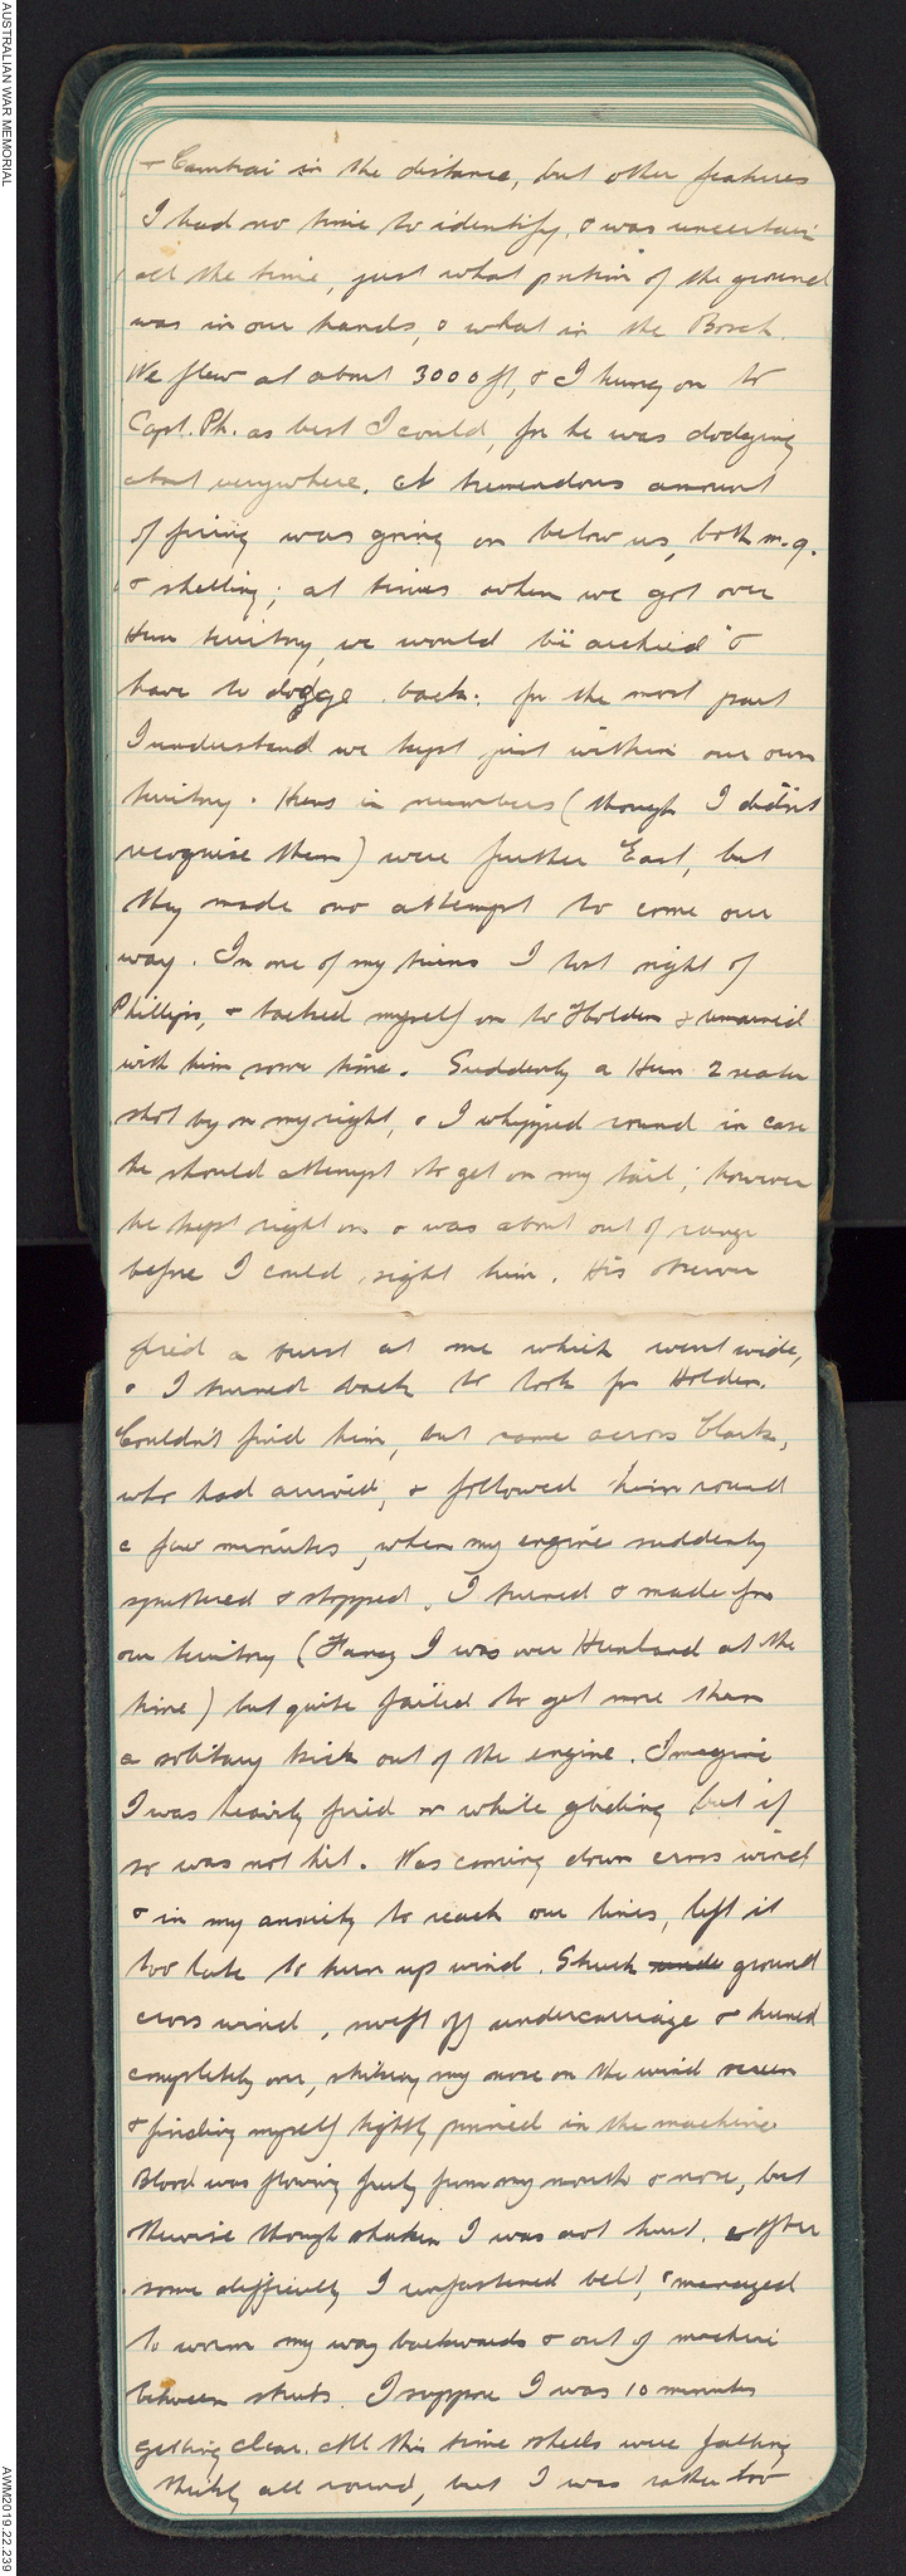 AUSTRALIAN WAR MEMORIAL
+ Cambrai in the distance, but other features
I had no time to identify, & was uncertain
all the time, just what portion of the ground
was in our hands, & what in the Bosch.
We flew at about 3000 ft, & I hung on to
Capt. Ph. as best I could, for he was dodging
about everywhere. A tremendous amount
of firing was going on below us, both m.g.
& shelling; at times when we got over
Hun territory, we would be "archied" &
have to dodge back. For the most part
I understand we kept just within our own
territory. Huns in numbers (though I didn't
recognise them) were further East, but
they made no attempt to come our
way. In one of my turns I lost sight of
Phillips, & tacked myself on to Holden & remained
with him some time. Suddenly a Hun 2 seater
shot by on my right, & I whipped round in case
he should attempt to get on my tail; however
he kept right on & was about out of range
before I could sight him. His observer
fired a burst at me which went wide,
& I turned back to look for Holden.
Couldn't find him, but came across Clark,
who had arrived, & followed him round
a few minutes, when my engine suddenly
spluttered & stopped. I turned & made for
our territory (Fancy I was over Hunland at the
time) but quite failed to get more than
a solitary kick out of the engine. Imagine
I was heavily fired on while gliding but if
so was not hit. Was coming down cross wind
& in my anxiety to reach our lines, left it
too late to turn up wind. Struck ground
cross wind, swept off undercarriage & turned
completely over, striking my nose on the wind screen
& finding myself tightly pinned in the machine
Blood was flowing freely from my mouth & nose, but
otherwise though shaken I was not hurt. After
some difficulty I unfastened belt, & managed
to worm my way backwards & out of machine
between struts. I suppose I was 10 minutes
getting clear. All this time shells were falling
thickly all round, but I was rather too
AWM2019.22.239